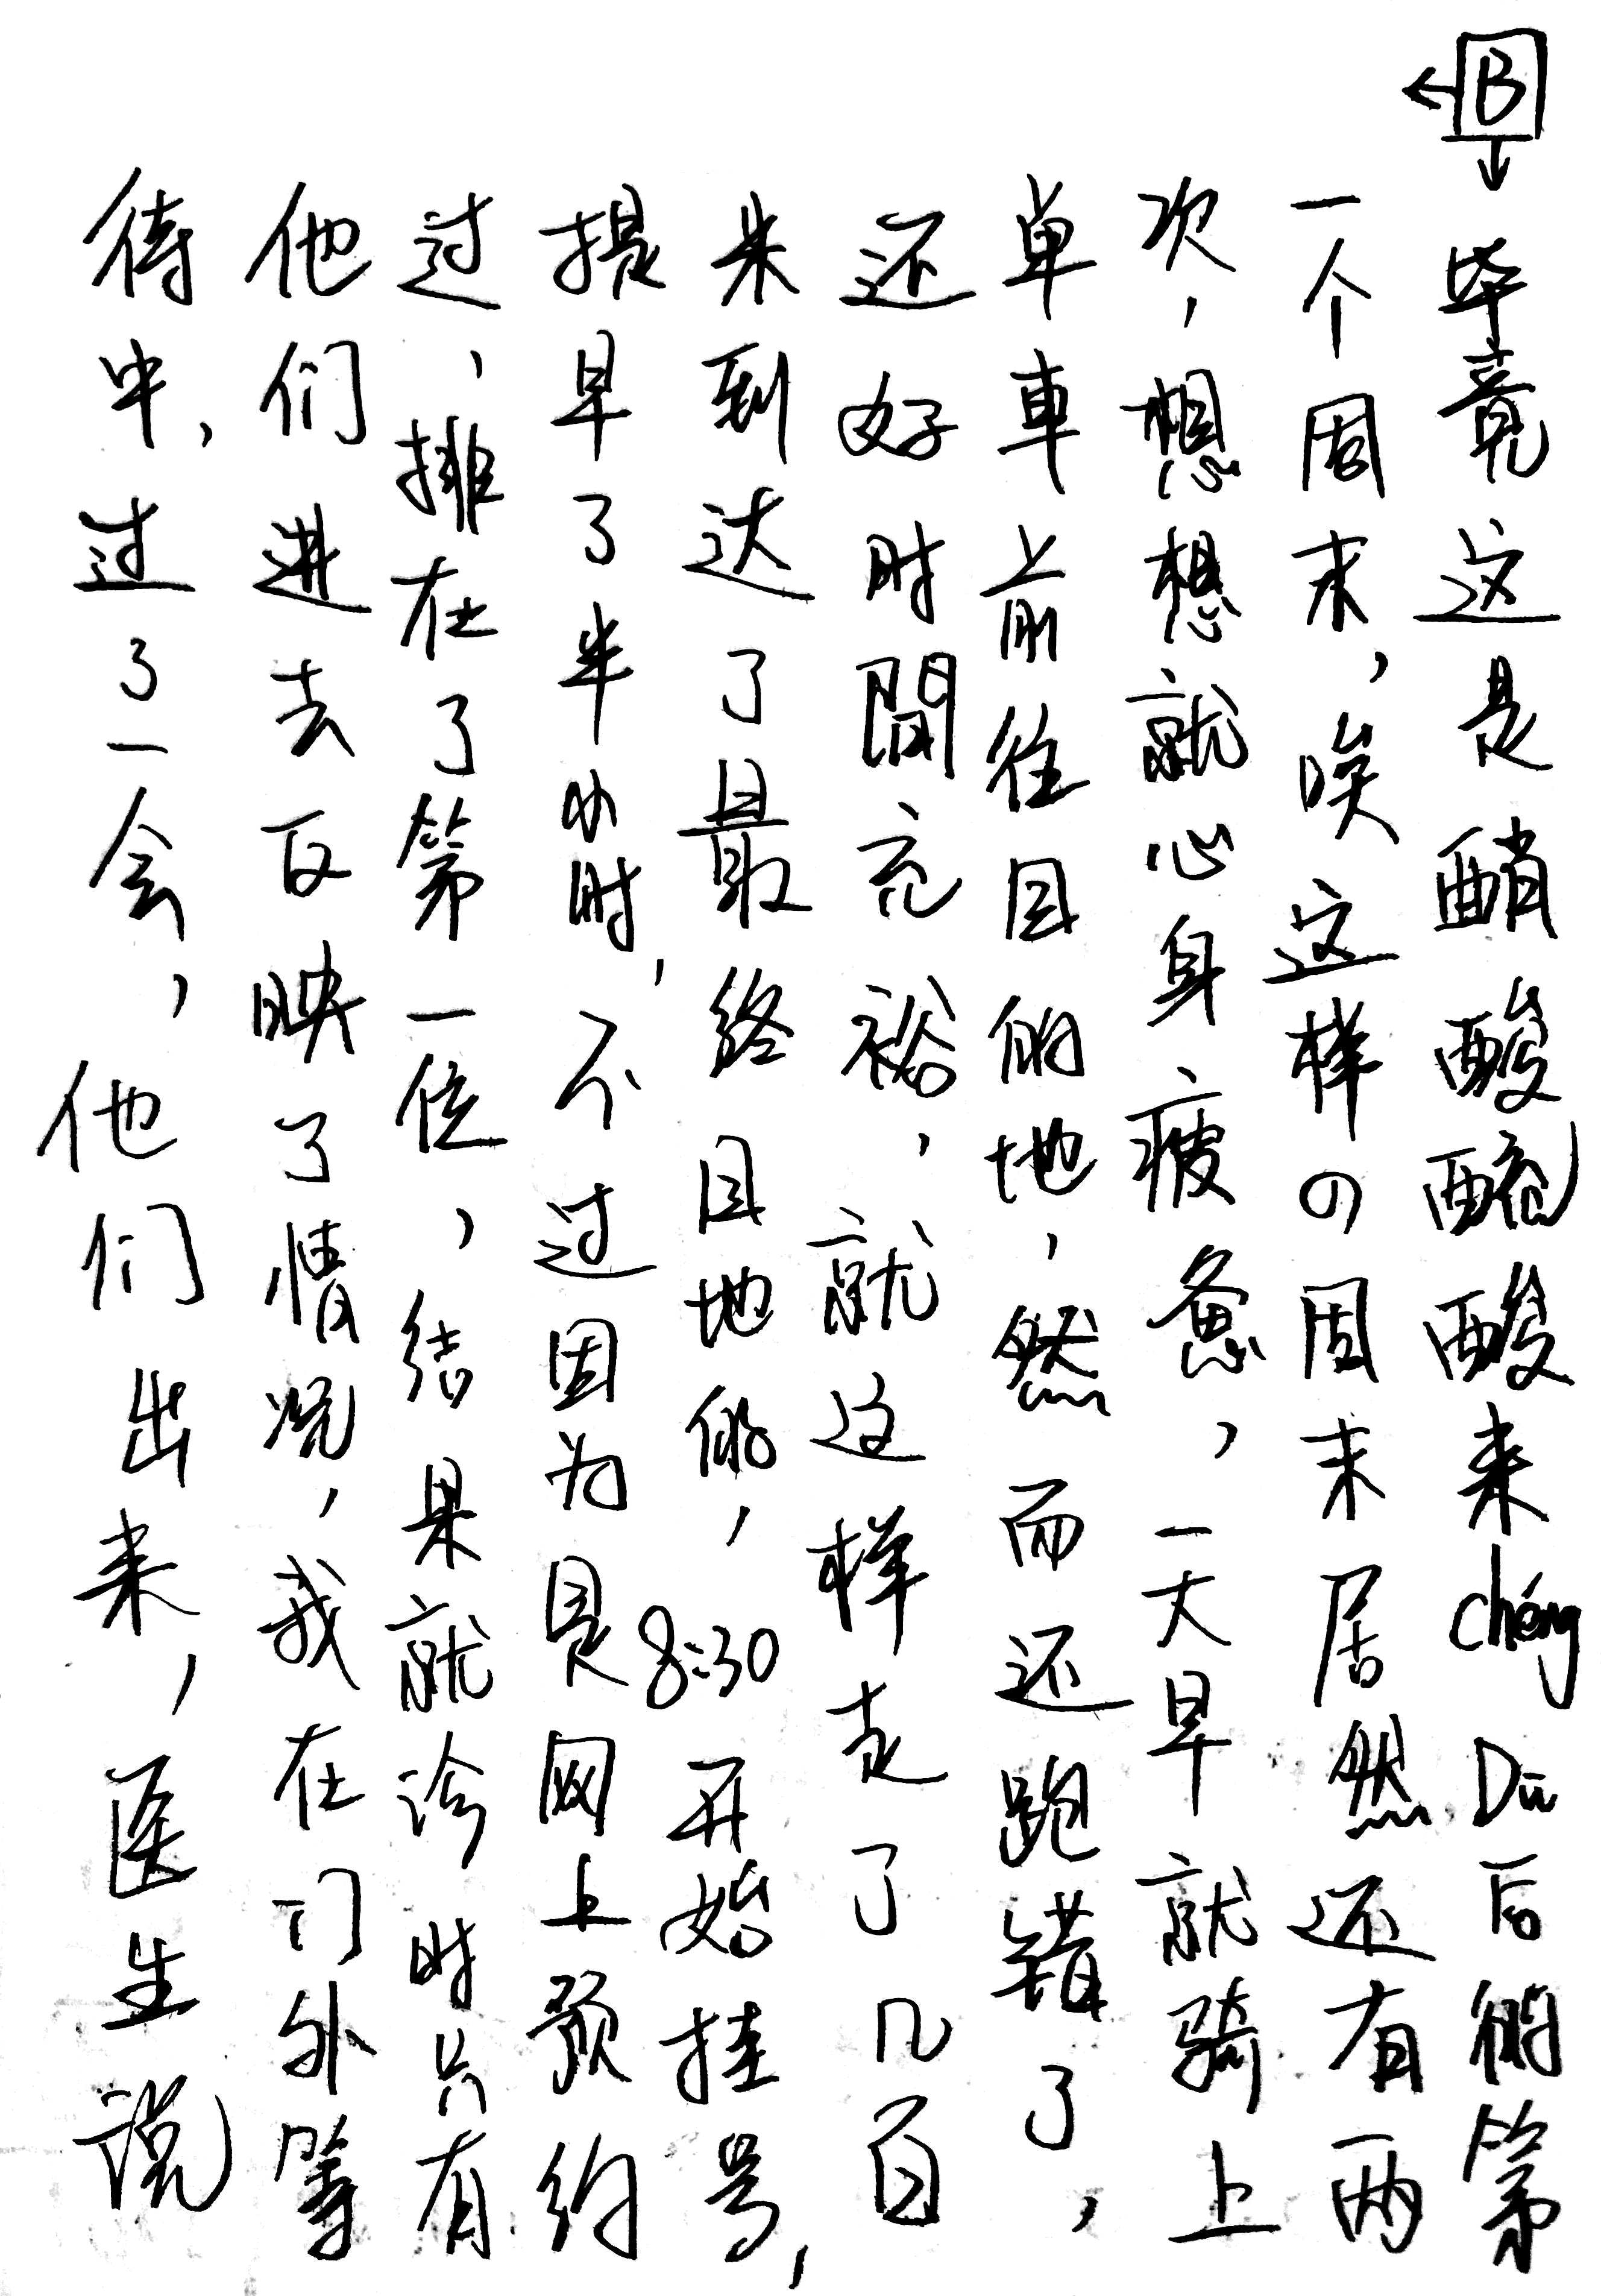 B
毕竟这是酯酸酯酸来chéng Dū后的第
一个周末,唉这样の周末居然还有两
次,想想就心身疲惫,一大早就骑上
单車前往目的地,然而还跑错了,
还好时間充裕,就这样走了几百
米到达了最终目地的,8:30开始挂号,
提早了半小时,不过因为是网上预约
过,排在了第一位,结果就诊时只有
他们进去反映了情况,我在门外等
待中,过了一会,他们出来,医生说